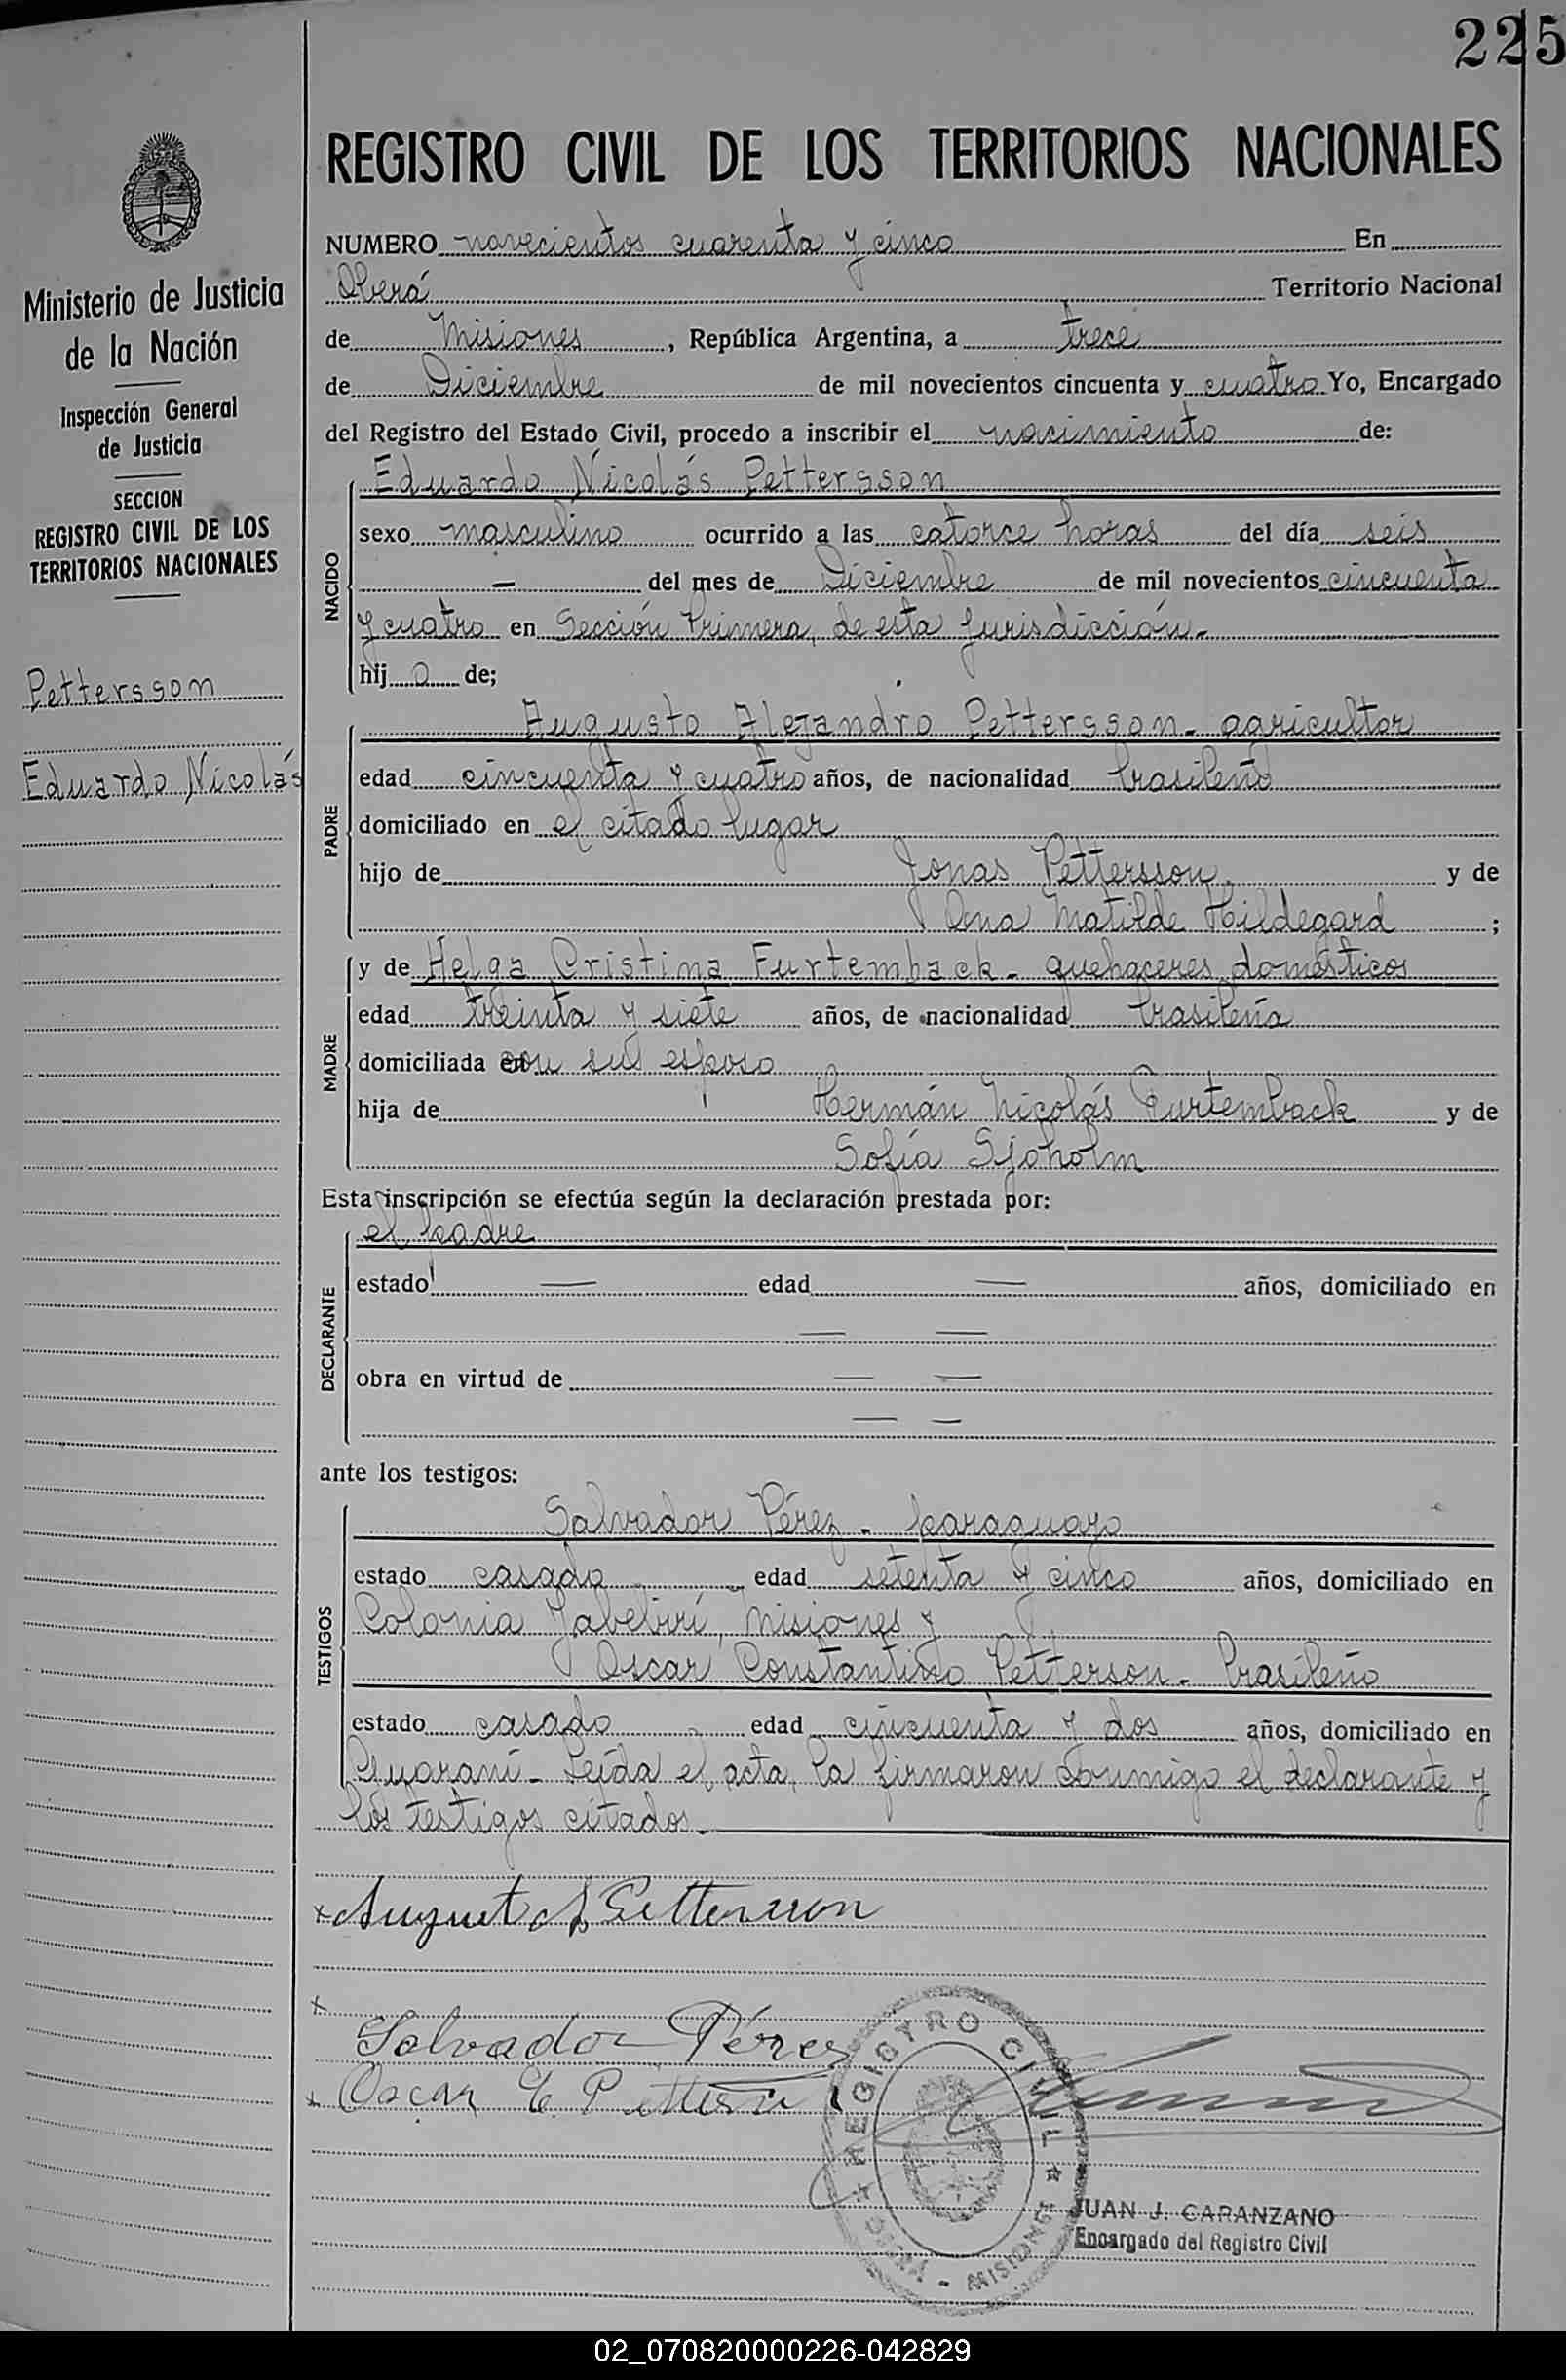 225
REGISTRO CIVIL DE LOS TERRITORIOS NACIONALES
Ministerio de Justicia
de la Nación
Inspección General
de Justicia
SECCION
REGISTRO CIVIL DE LOS
TERRITORIOS NACIONALES
Pettersson
Eduardo Nicolás
NUMERO novecientos cuarenta y cinco En
Oberá Territorio Nacional
de Misiones, República Argentina, a trece
de Diciembre de mil novecientos cincuenta y cuatro Yo, Encargado
del Registro del Estado Civil, procedo a inscribir el nacimiento de:
NACIDO
Eduardo Nicolás Pettersson
sexo masculino ocurrido a las catorce horas del día seis
— del mes de Diciembre de mil novecientos cincuenta
y cuatro en Sección Primera, de esta jurisdicción.-
hij o de;
PADRE
Augusto Alejandro Pettersson - agricultor
edad cincuenta y cuatro años, de nacionalidad brasileño
domiciliado en el citado lugar
hijo de Jonas Pettersson y de
Ana Matilde Hildegard ;
MADRE
y de Helga Cristina Furtemback - quehaceres domésticos
edad treinta y siete años, de nacionalidad brasileña
domiciliada con su esposo
hija de Hermán Nicolás Furtemback y de
Sofía Sjoholm
Esta inscripción se efectúa según la declaración prestada por:
DECLARANTE
el padre
estado — edad — años, domiciliado en
— —
obra en virtud de — —
— —
ante los testigos:
TESTIGOS
Salvador Pérez - paraguayo
estado casado edad setenta y cinco años, domiciliado en
Colonia Yabebirí, Misiones y
Oscar Constantino Petterson - brasileño
estado casado edad cincuenta y dos años, domiciliado en
Guaraní - Leída el acta, la firmaron conmigo el declarante y
los testigos citados.-
x August A Pettersson
x
Salvador Pérez
x Oscar C. Petterson
REGISTRO CIVIL
OBERA - MISIONES
JUAN J. CARANZANO
Encargado del Registro Civil
02_070820000226-042829